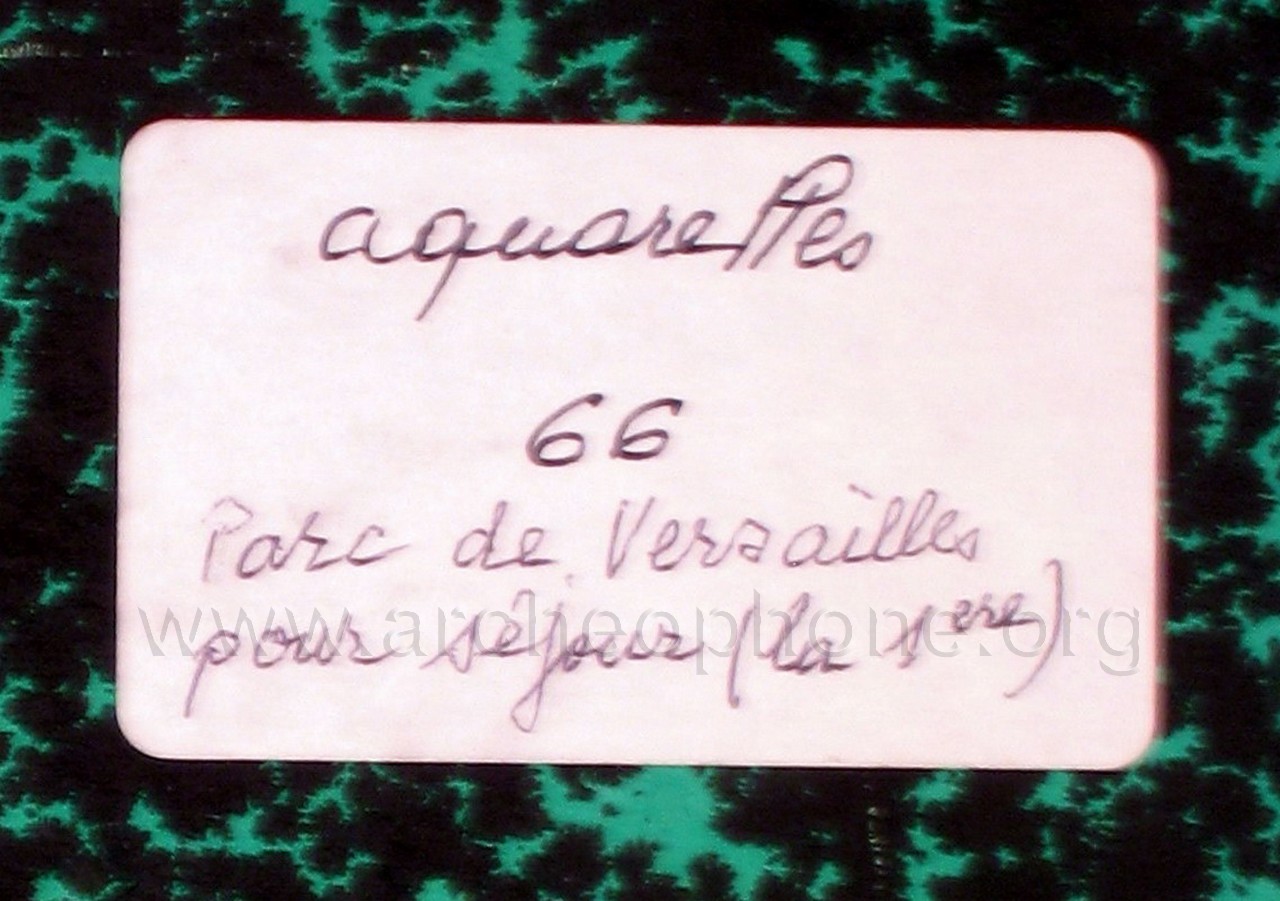 aquarelles
66
Parc de Versailles
www.archeophone.org
pour séjour (la 1ere)